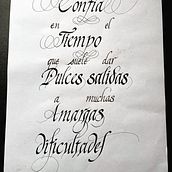 Confia
en el
Tiempo
que suele dar
Dulces salidas
a muchas
Amargas
dificultades